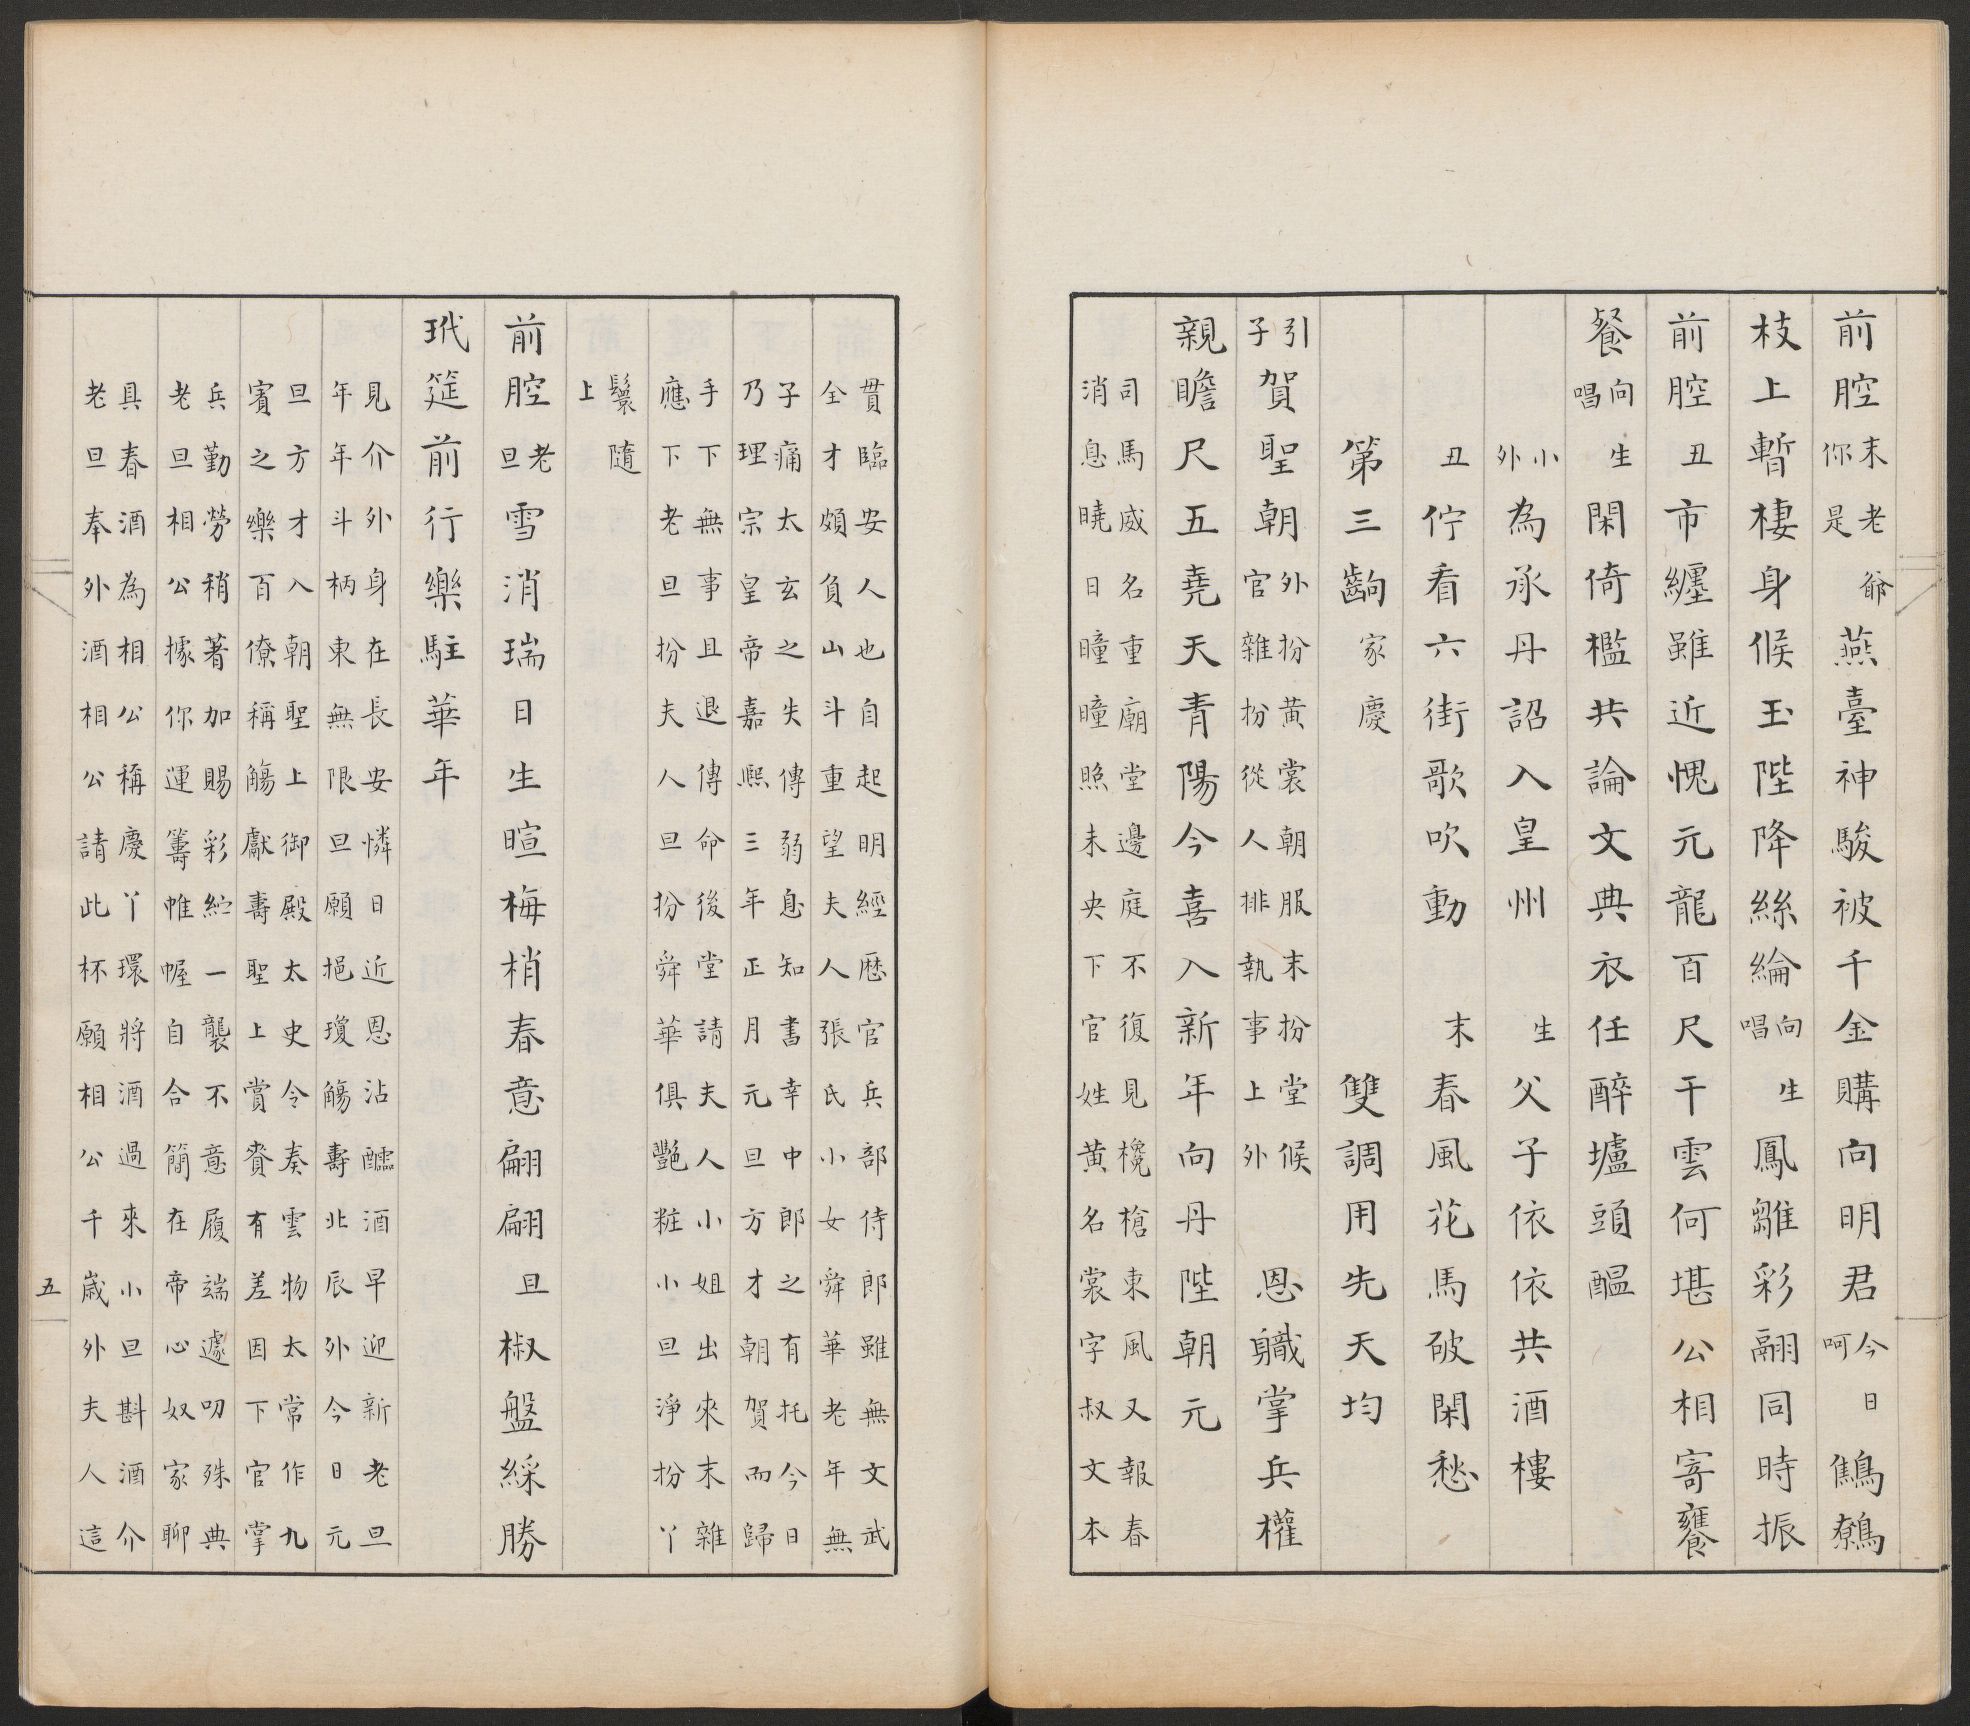 前腔末老爺你是燕臺神駿被千金購向明君今日呵鷦鷯
枝上暫棲身候玉陛降絲綸向唱生鳳雛彩翮同時振
前腔丑市纏雖近愧元龍百尺干雲何堪公相寄饔
餐向唱生閑倚檻共論文典衣任醉壚頭醞
小外為承丹詔入皇州生父子依依共酒樓
丑佇看六街歌吹動末春風花馬破閑愁
第三齣家慶雙調用先天均
引子賀聖朝外扮黃裳朝服末扮堂候官雜扮從人排執事上外恩職掌兵權
親瞻尺五堯天青陽今喜入新年向丹陛朝元
司馬威名重廟堂邊庭不復見欃槍東風又報春
消息曉日曈曈照未央下官姓黄名裳字叔文本
貫臨安人也自起明經歷官兵部侍郎雖無文武
全才頗負山斗重望夫人張氏小女舜華老年無
子痛太玄之失傳弱息知書幸中郎之有托今日
乃理宗皇帝嘉熙三年正月元旦方才朝賀而歸
手下無事且退傳命後堂請夫人小姐出來末雜
應下老旦扮夫人旦扮舜華俱艷粧小旦淨扮丫
鬟隨上
前腔老旦雪消瑞日生暄梅梢春意翩翩旦椒盤綵勝
玳筵前行樂駐華年
見介外身在長安憐日近恩沾醽酒早迎新老旦
年年斗柄東無限旦願挹瓊觴壽北辰外今日元
旦方才入朝聖上御殿太史令奏雲物太常作九
賓之樂百僚稱觴獻壽聖上賞賚有差因下官掌
兵勤勞稍著加賜彩紵一襲不意履端遽叨殊典
老旦相公據你運籌帷幄自合簡在帝心奴家聊
具春酒為相公稱慶丫環將酒過來小旦斟酒介
老旦奉外酒相公請此杯願相公千歲外夫人這
五